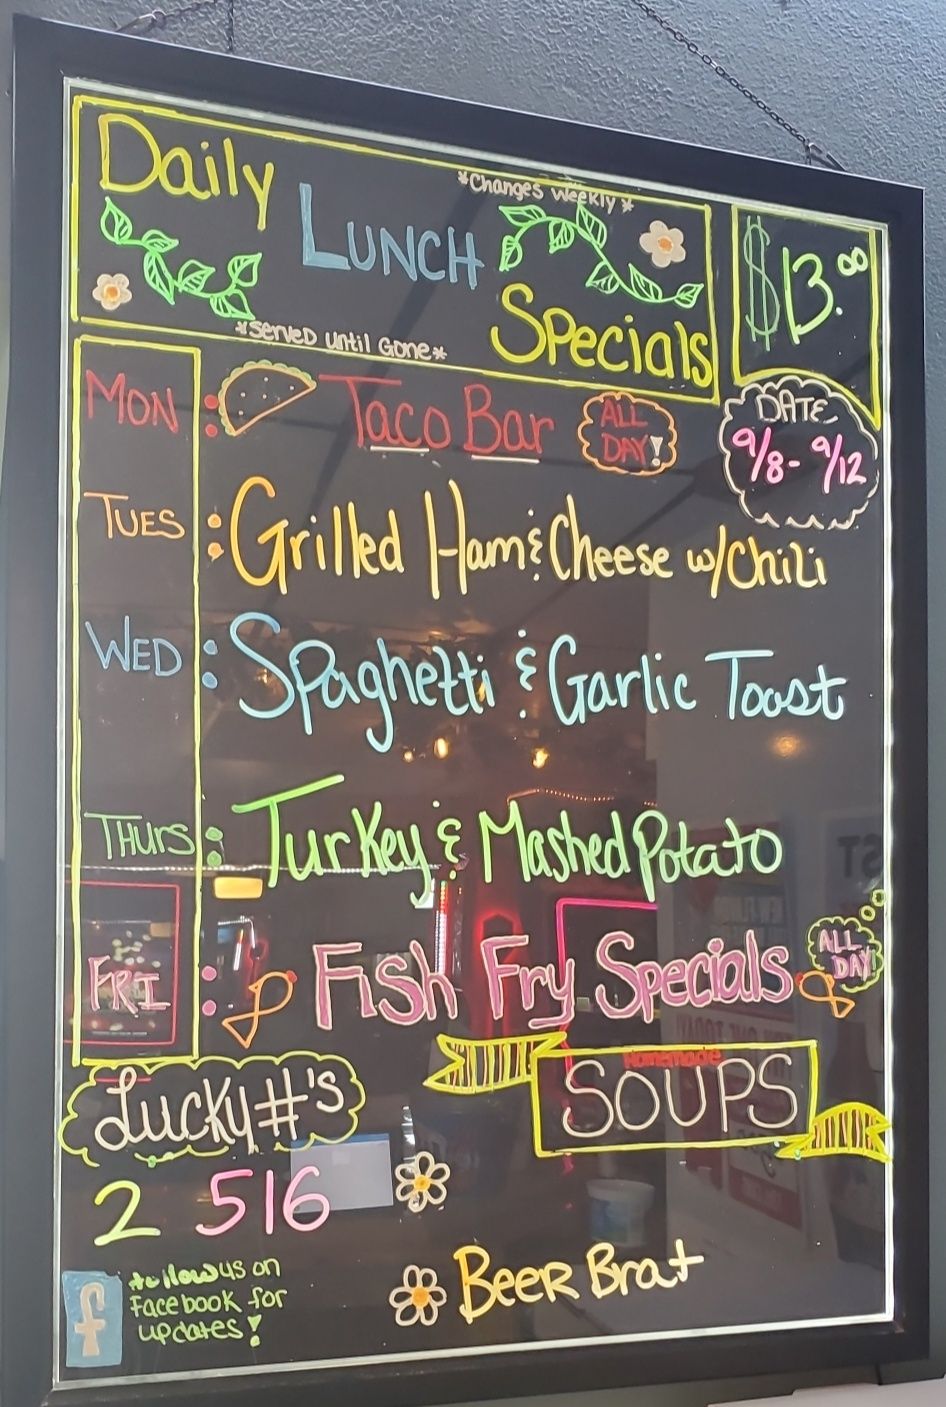 Daily
*Changes weekly*
LUNCH
Specials
*Served Until Gone*
$13.00
DATE
9/8 - 9/12
MON : Taco Bar ALL DAY!
TUES : Grilled Ham & Cheese w/Chili
WED : Spaghetti & Garlic Toast
THURS : Turkey & Mashed Potato
FRI : Fish Fry Specials ALL DAY!
Lucky #'s
2 516
Homemade
SOUPS
Beer Brat
f
Follow us on
Facebook for
updates!